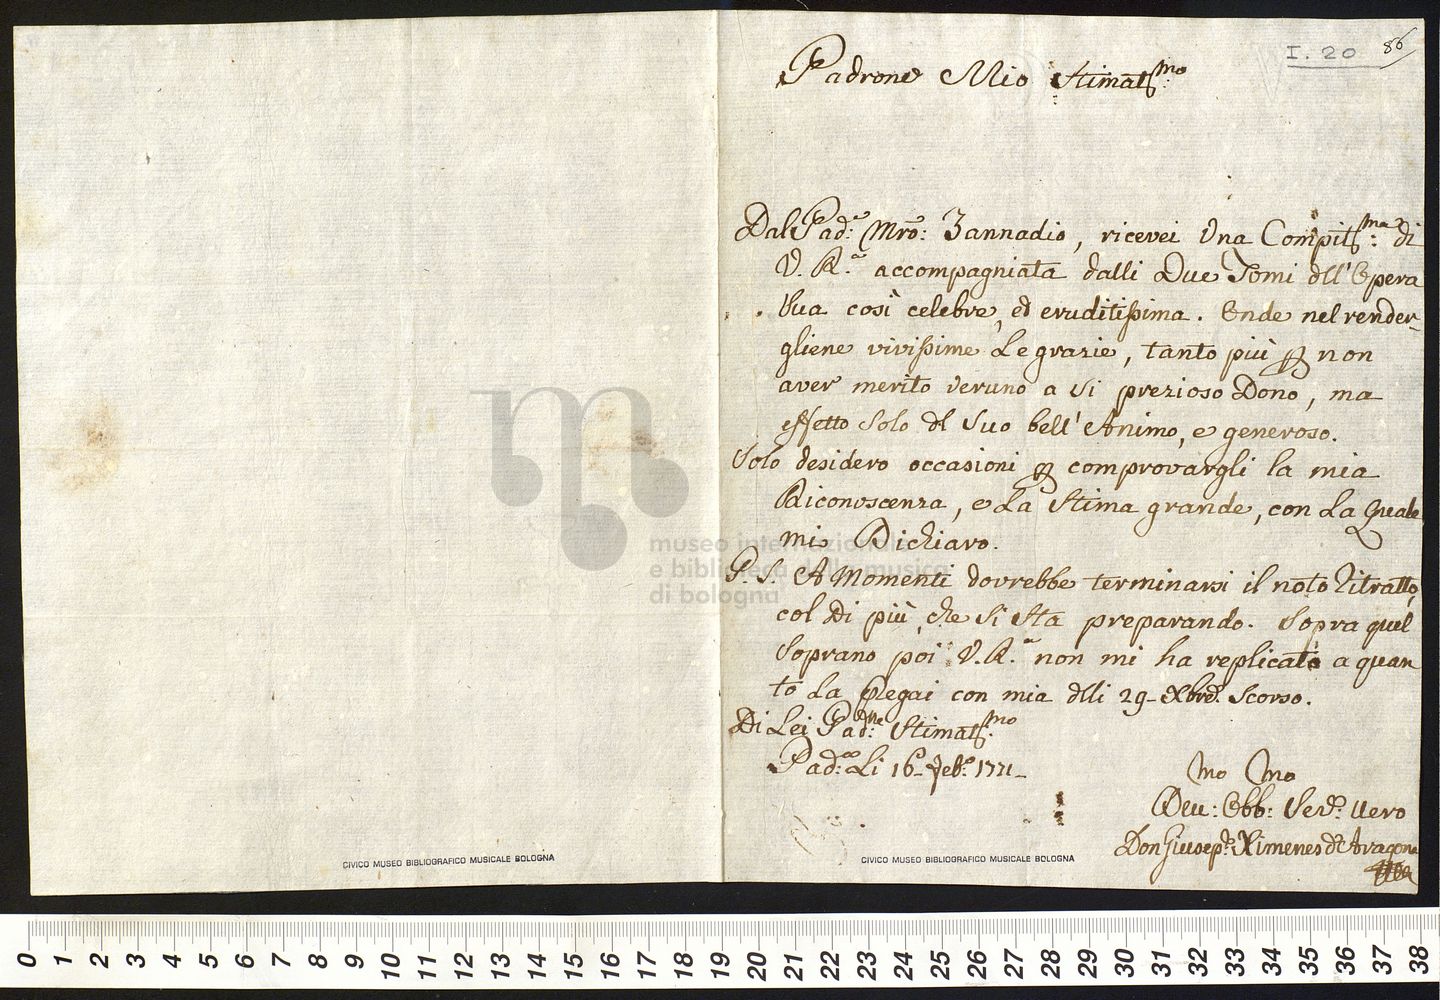 I. 20 86
Padrone Mio Stimatis:mo
Dal Pad:e Mro: Zannadio, ricevei Una Compitis:ma di
V. R.a accompagniata dalli Due Tomi dll'Opera
Sua così celebre, ed eruditissima. Onde nel render-
gliene vivissime Le grazie, tanto più p non
aver merito veruno a Si prezioso Dono, ma
effetto Solo dl Suo bell'Animo, e generoso.
Solo desidero occasioni p comprovargli la mia
Riconoscenza, e La Stima grande, con La quale
mi Dichiaro.
P. S. A Momenti dovrebbe terminarsi il noto Ritratto,
col Di più, che Si Sta preparando. Sopra quel
Soprano poi V. R.a non mi ha replicato a quan
to La pregai con mia dlli 29- Xbre. Scorso.
Di Lei Pad:ne Stimatis:mo
Li 16- Feb:o 1771-
mo mo
Obb: Ser: Vero
Don Giusep:e Ximenes d'Aragona
museo internazionale
e biblioteca della musica
di bologna
CIVICO MUSEO BIBLIOGRAFICO MUSICALE BOLOGNA CIVICO MUSEO BIBLIOGRAFICO MUSICALE BOLOGNA
0 1 2 3 4 5 6 7 8 9 10 11 12 13 14 15 16 17 18 19 20 21 22 23 24 25 26 27 28 29 30 31 32 33 34 35 36 37 38